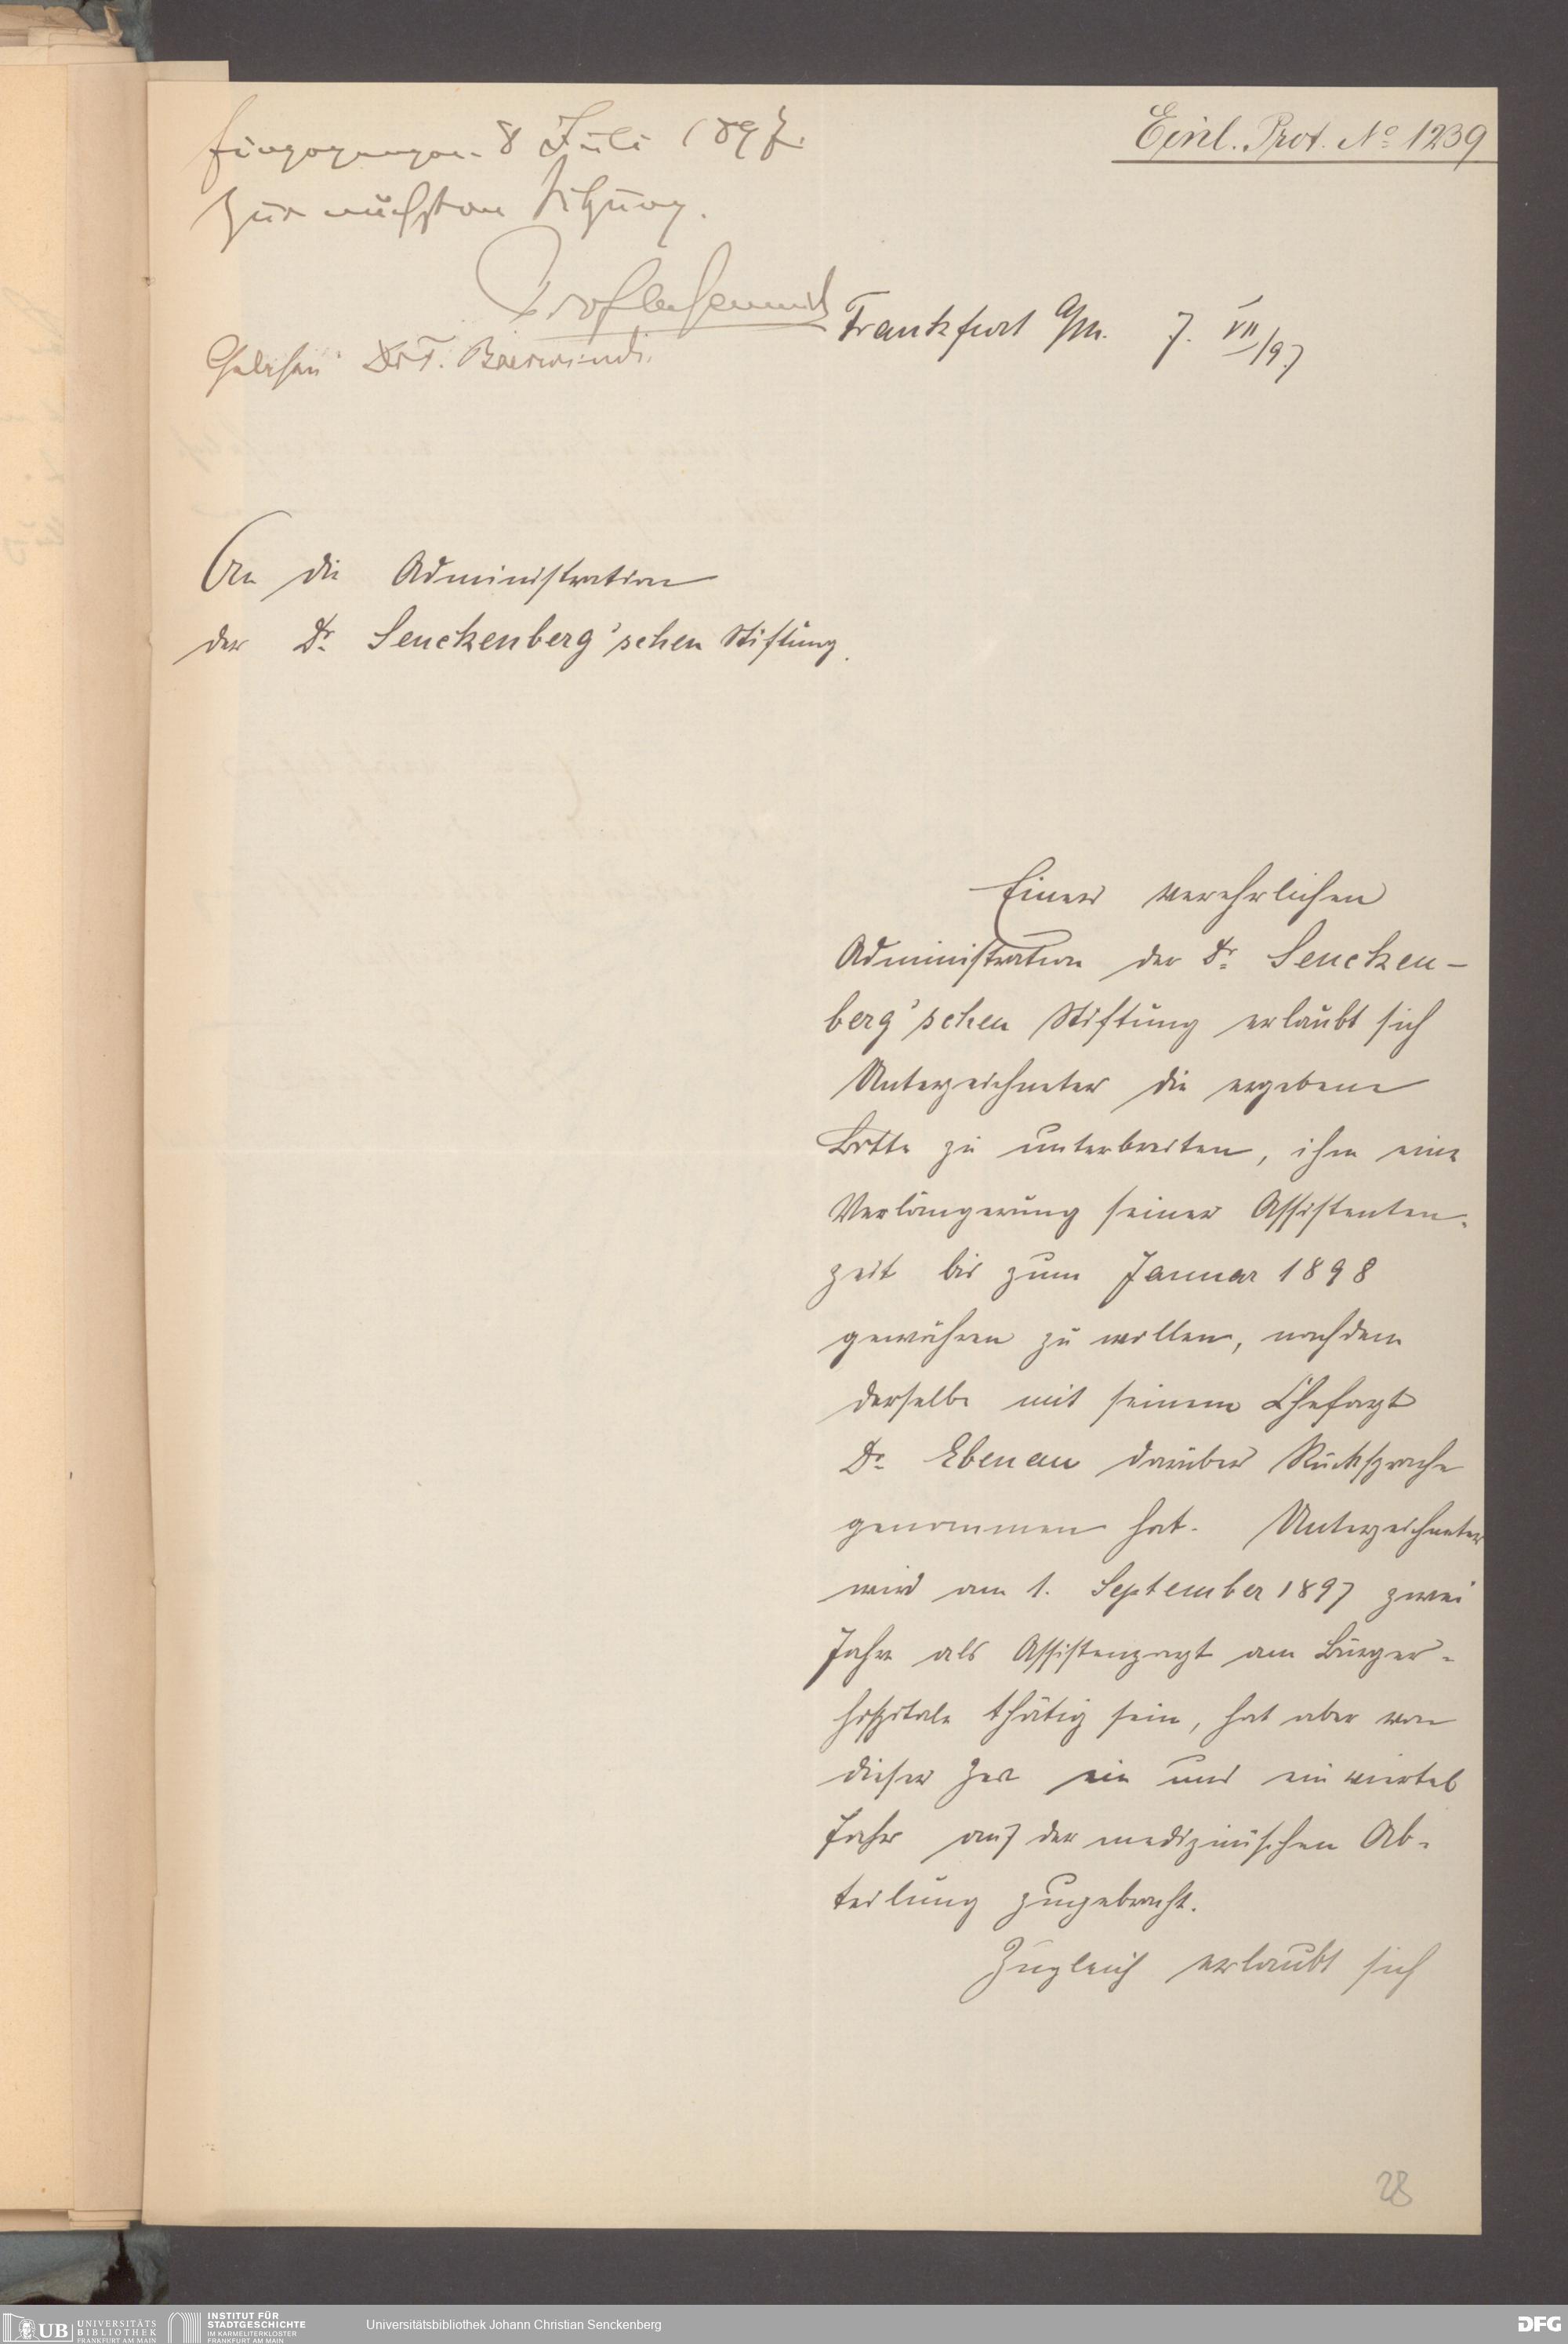 Eingegangen 8 Juli 1897.
Einl. Prot. No 1239
Zur nächsten Sitzung.
Gelesen Dr F. Baerwindt.
Frankfurt a/M. 7. VII/97
An die Administration
der Dr. Senckenberg'schen Stiftung.
Einer verehrlichen
Administration der Dr. Sencken-
berg'schen Stiftung erlaubt sich
Unterzeichneter die ergebene
Bitte zu unterbreiten, ihm eine
Verlängerung seiner Assistenten-
zeit bis zum Januar 1898
gewähren zu wollen, nachdem
derselbe mit seinem Chefarzt
Dr. Ebenau darüber Rücksprache
genommen hat. Unterzeichneter
wird am 1. September 1897 zwei
Jahre als Assistenzarzt am Bürger-
hospitale thätig sein, hat aber von
dieser Zeit ein und ein viertel
Jahr auf der medizinischen Ab-
teilung zugebracht.
Zugleich erlaubt sich
28
UB UNIVERSITÄTS
BIBLIOTHEK
FRANKFURT AM MAIN
INSTITUT FÜR
STADTGESCHICHTE
IM KARMELITERKLOSTER
FRANKFURT AM MAIN
Universitätsbibliothek Johann Christian Senckenberg
DFG